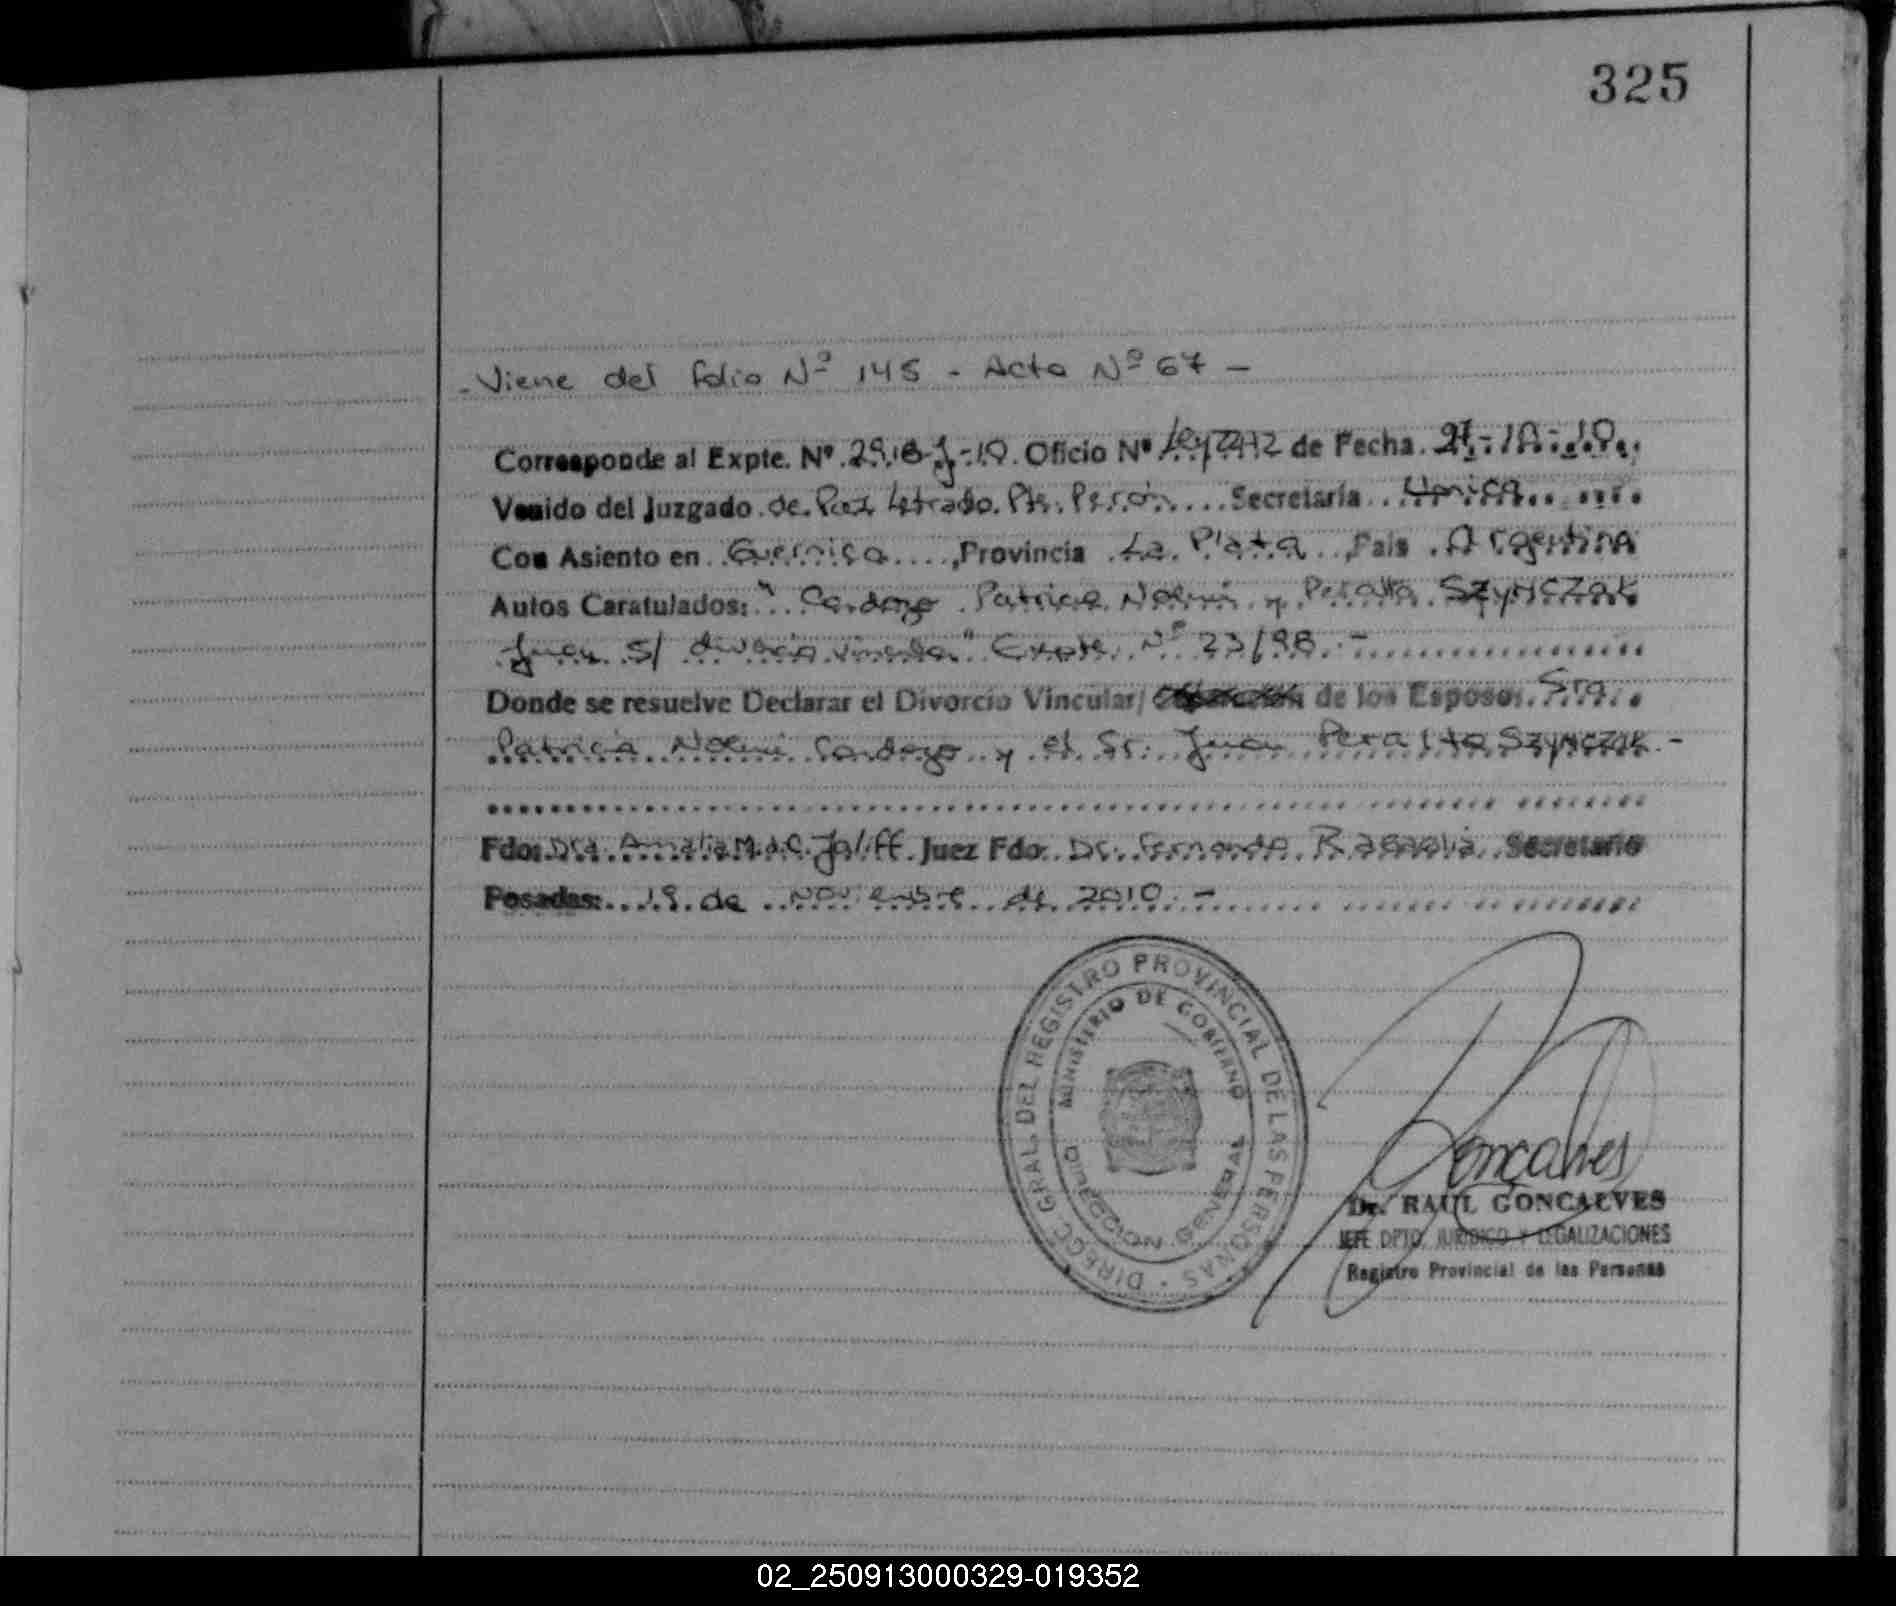 325
- Viene del folio Nº 145 - Acta Nº 67 -
Corresponde al Expte. Nº 2918-J-10. Oficio Nº Ley 22172 de Fecha
Venido del Juzgado de Paz Letrado. Pte. Perón Secretaría Unica
Con Asiento en Guernica, Provincia La Plata, País Argentina
Autos Caratulados: "Cardozo Patricia Noemi y Peralta Szynczak
Juan S/ divorcio vincular" Expte. Nº 23/98.-
Donde se resuelve Declarar el Divorcio Vincular/ de los Esposos Sra.
Patricia Noemi Cardozo y el Sr. Juan Peralta Szynczak.-
Fdo: Dra. Amalia M. d. C. Jaliff. Juez Fdo. Dr. Fernando Secretario
Posadas: 19 de noviembre de 2010.-
DIRECC. GRAL. DEL REGISTRO PROVINCIAL DE LAS PERSONAS
MINISTERIO DE GOBIERNO
DIRECCION GENERAL
Goncalves
Dr. RAUL GONCALVES
JEFE DPTO. JURIDICO Y LEGALIZACIONES
Registro Provincial de las Personas
02_250913000329-019352